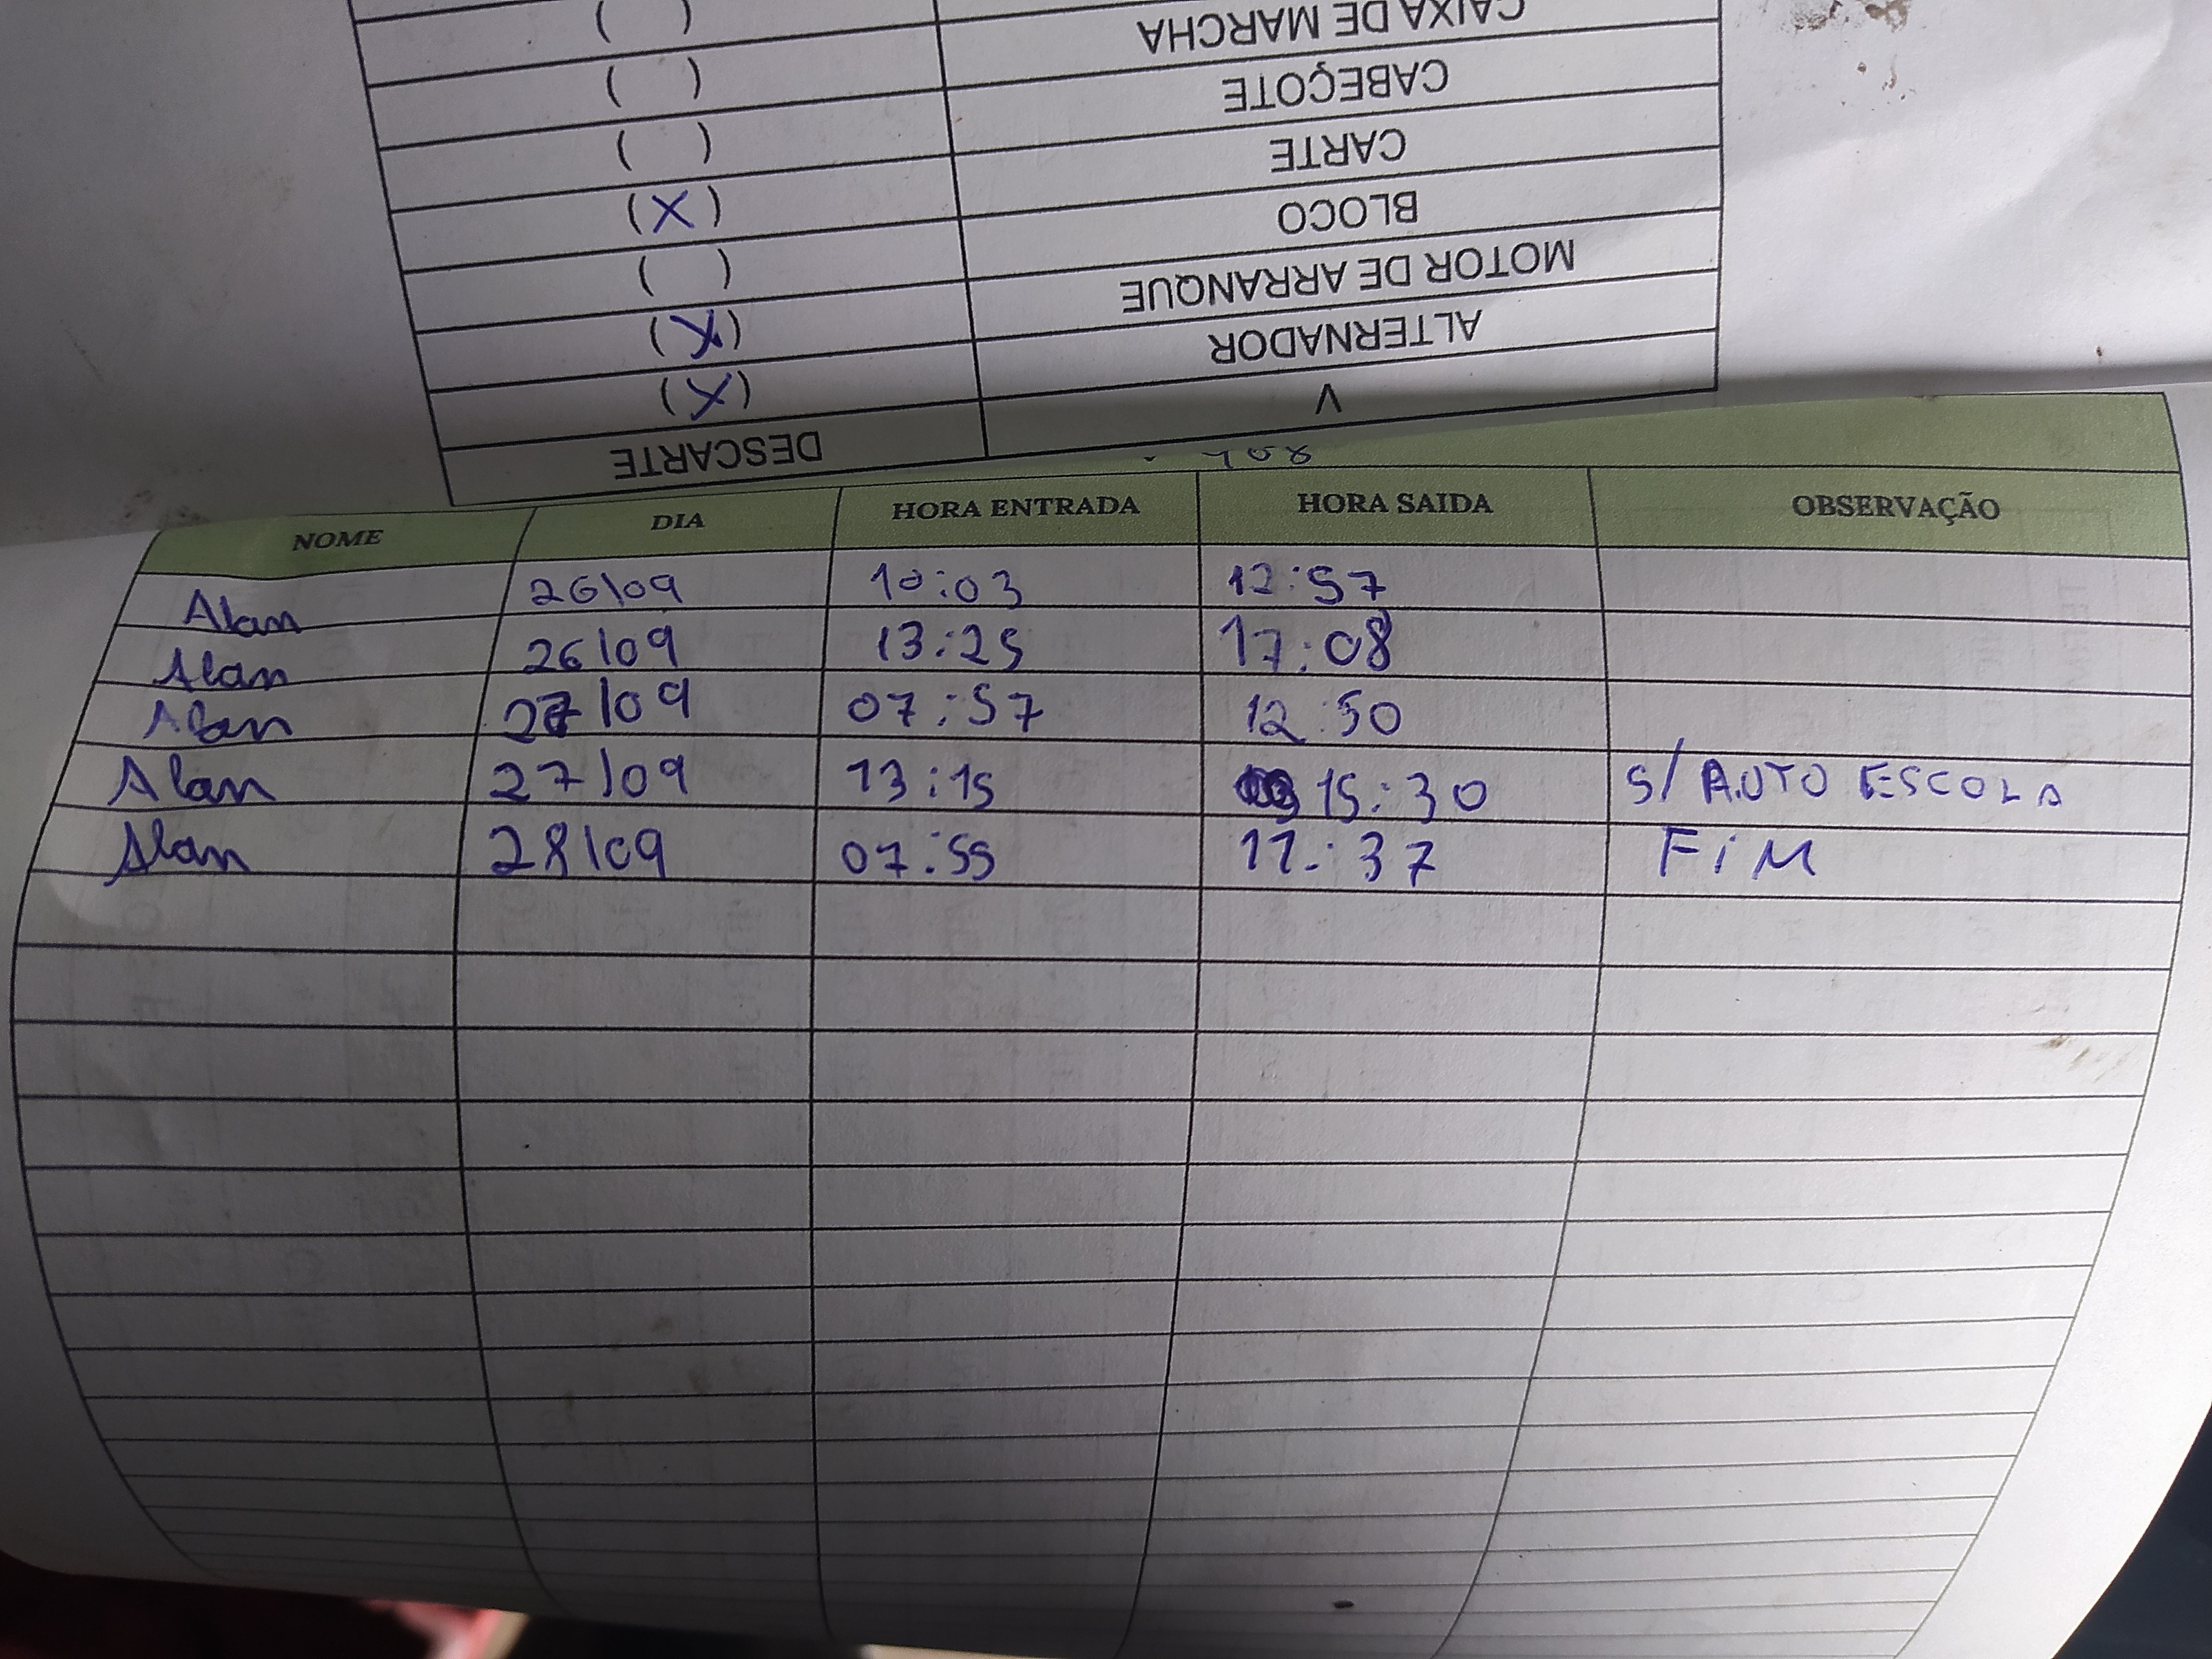 ( ) CAIXA DE MARCHA
( ) CABEÇOTE
( ) CARTE
(X) BLOCO
( ) MOTOR DE ARRANQUE
(X) ALTERNADOR
(X)
DESCARTE
NOME DIA HORA ENTRADA HORA SAIDA OBSERVAÇÃO
Alan 26/09 10:03 12:57
Alan 26/09 13:25 17:08
Alan 27/09 07:57 12:50
Alan 27/09 13:15 15:30 S/ AUTO ESCOLA
Alan 28/09 07:55 11:37 FiM